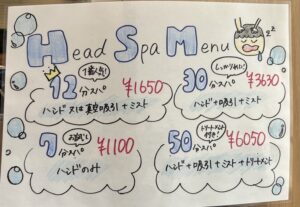 Head Spa Menu
zz
1番人気!
12分スパ ¥1650
ハンド又は真空吸引+ミスト
しっかりめに!
30分スパ ¥3630
ハンド+吸引+ミスト
お試し
7分スパ ¥1100
ハンドのみ
トリートメント付き!
50分スパ ¥6050
ハンド+吸引+ミスト+トリートメント